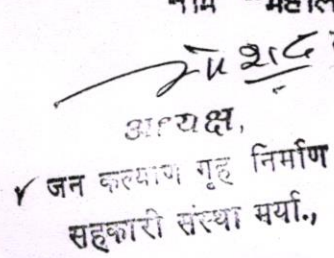 अध्यक्ष,
जन कल्याण गृह निर्माण
सहकारी संस्था मर्या.,